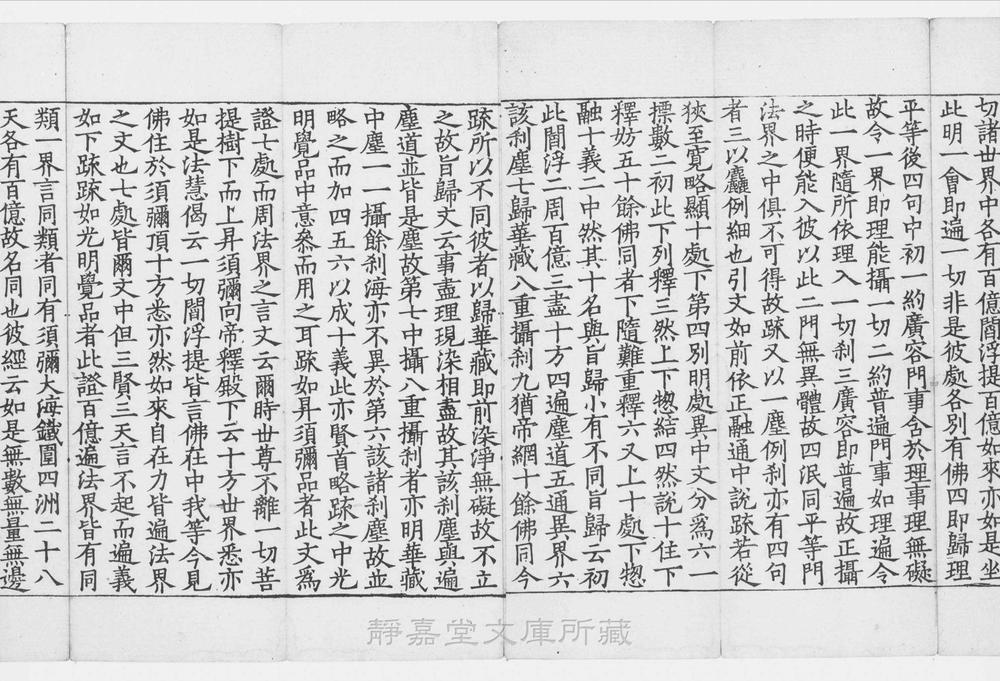 切諸世界中各有百億閻浮提百億如來亦如是坐
此明一會即遍一切非是彼處各別有佛四即歸理
平等後四句中初一約廣容門事含於理事理無礙
故令一界即理能攝一切二約普遍門事如理遍令
此一界隨所依理入一切刹三廣容即普遍故正攝
之時便能入彼以此二門無異體故四泯同平等門
法界之中俱不可得故疏又以一塵例刹亦有四句
者三以麤例細也引文如前依正融通中說疏若從
狹至寬略顯十處下第四別明處異中文分爲六一
摽數二初此下列釋三然上下惣結四然說十住下
釋妨五十餘佛同者下隨難重釋六又上十處下惣
融十義二中然其十名與旨歸小有不同旨歸云初
此閻浮二周百億三盡十方四遍塵道五通異界六
該刹塵七歸華藏八重攝刹九猶帝網十餘佛同今
疏所以不同彼者以歸華藏即前染淨無礙故不立
之故旨歸文云事盡理現染相盡故其該刹塵與遍
塵道並皆是塵故第七中攝八重攝刹者亦明華藏
中塵一一攝餘刹海亦不異於第六該諸刹塵故並
略之而加四五六以成十義此亦賢首略疏之中光
明覺品中意叅而用之耳疏如昇須彌品者此文爲
證七處而周法界之言文云爾時世尊不離一切菩
提樹下而上昇須彌向帝釋殿下云十方世界悉亦
如是法慧偈云一切閻浮提皆言佛在中我等今見
佛住於須彌頂十方悉亦然如來自在力皆遍法界
之文也七處皆爾文中但三賢三天言不起而遍義
如下疏疏如光明覺品者此證百億遍法界皆有同
類一界言同類者同有須彌大海鐵圍四洲二十八
天各有百億故名同也彼經云如是無數無量無邊
靜嘉堂文庫所藏